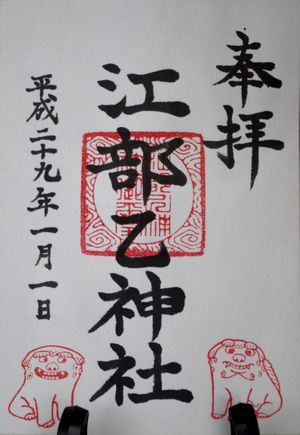 奉拝
江部乙神社
平成二十九年一月一日